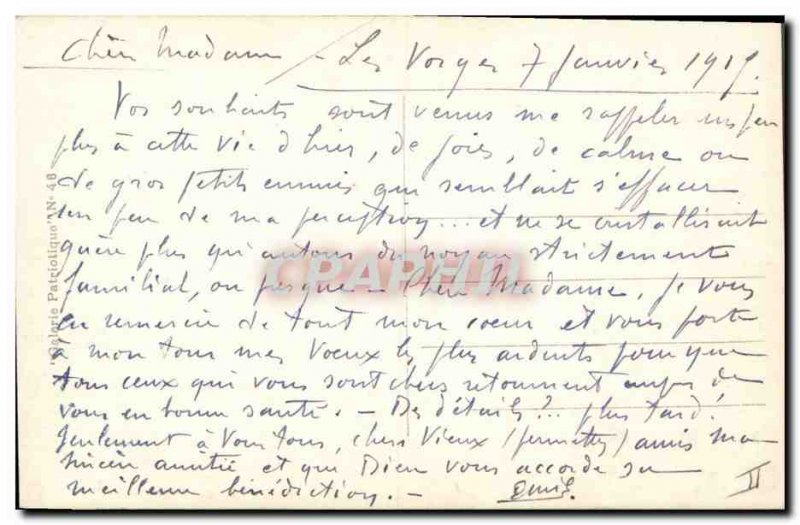 Chère Madame - Les Vosges 7 Janvier 1915.
Vos souhaits sont venus me rappeler un peu
plus à cette vie d'hier, de joies, de calme ou
de gros petits ennuis qui semblait s'effacer
un peu de ma perception... et ne se cristallisait
guère plus qu'autour du noyau strictement
familial, ou presque - Chère Madame, je vous
en remercie de tout mon coeur et vous porte
à mon tour mes Voeux les plus ardents pour que
tous ceux qui vous sont chers retournent auprès de
vous en bonne santé. - Des détails?... plus tard!
Seulement à Vous tous, chers Vieux (permettez) amis ma
sincère amitié et que Dieu vous accorde sa
meilleure bénédiction. -
II
"Galerie Patriotique" N° 46
CPAPHIL